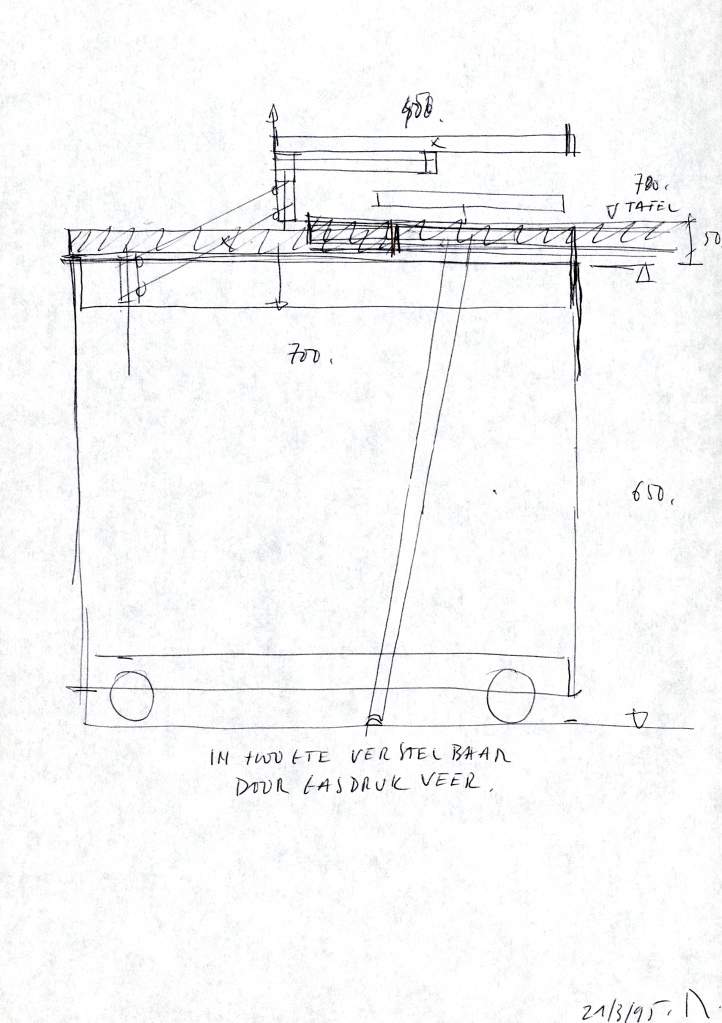 700.
▽ TAFEL
50
700.
650.
IN HOOGTE VERSTELBAAR
DOOR GASDRUK VEER.
21/3/95.